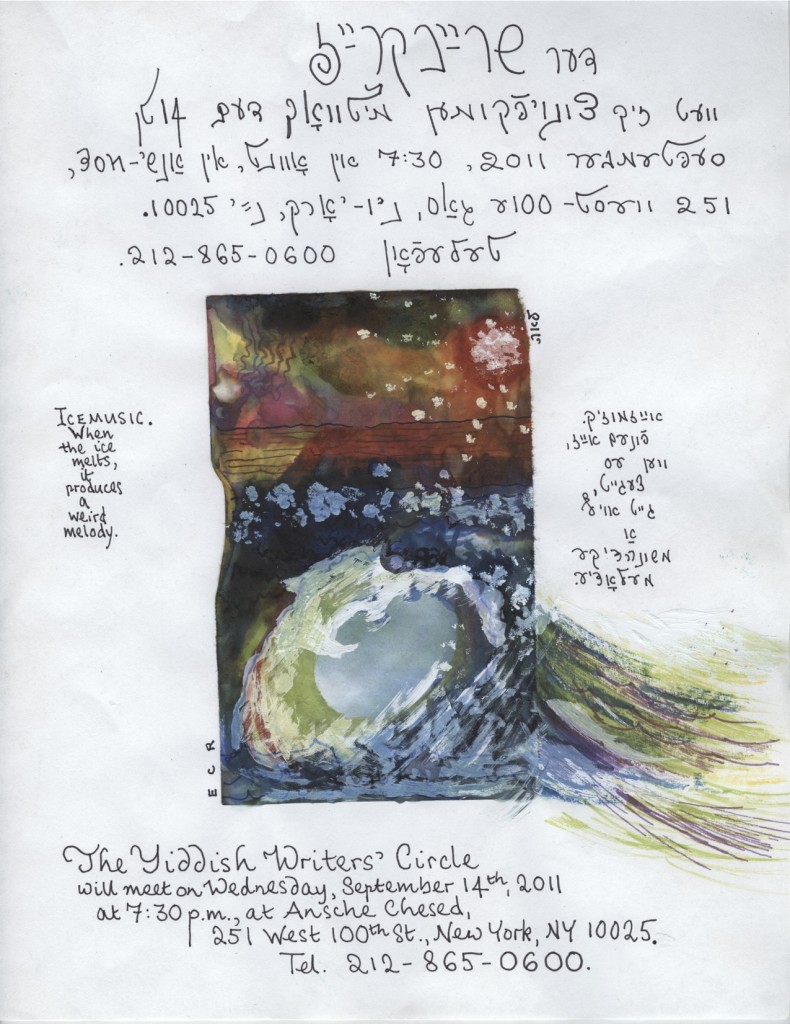 דער שרײַבקרײַז
וועט זיך צונויפֿקומען מיטוואָך דעם 14טן
סעפּטעמבער 2011, 7:30 אין אָוונט, אין אַנשי-חסד,
251 וועסט-100טע גאַס, ניו-יאָרק, נ״י 10025.
טעלעפֿאָן 212-865-0600.
ICEMUSIC.
When
the ice
melts,
it
produces
a
weird
melody.
אײַזמוזיק.
פֿונעם אײַז,
ווען עס
צעגייט,
גייט אויף
אַ
משונהדיקע
מעלאָדיע.
ECR
The Yiddish Writers' Circle
will meet on Wednesday, September 14th, 2011
at 7:30 p.m., at Ansche Chesed,
251 West 100th St., New York, NY 10025.
Tel. 212-865-0600.